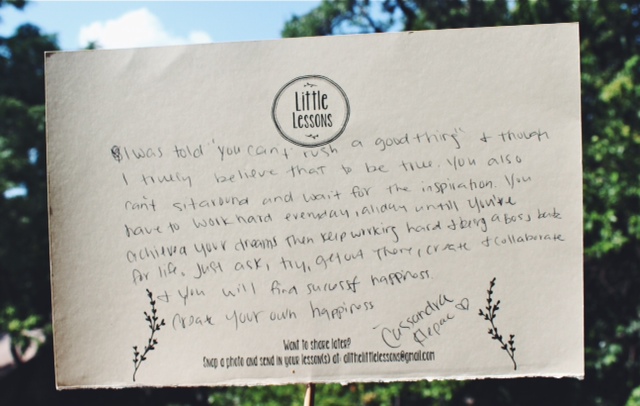 Little
Lessons
I was told "you can't rush a good thing" & though
I truely believe that to be true. You also
can't sit around and wait for the inspiration. You
have to work hard everyday, all day untill you're
achieved your dreams then keep working hard & being a boss babe
for life. Just ask, try, get out there, create & collaborate
& you will find success & happiness.
Create your own happiness
Cassandra
Want to share later?
Snap a photo and send in your lesson(s) at: allthelittlelessons@gmail.com